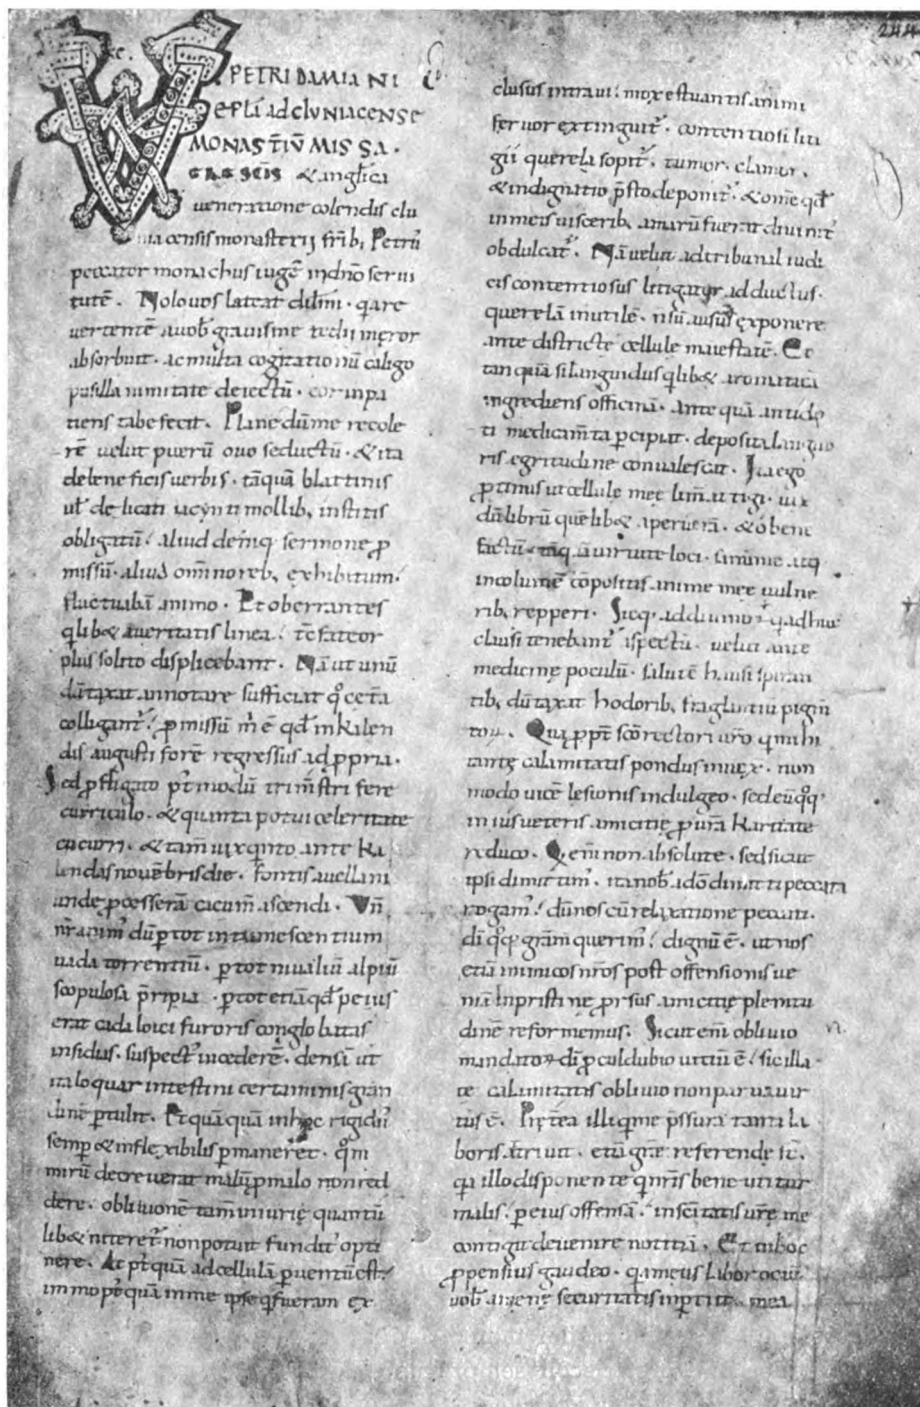 PETRI DAMIANI
EPLA AD CLVNIACENSE
MONASTIV MISSA.
SCIS & anglica
ueneratione colendis clu
niacensis monasterii frib; Petr'
peccator monachus iuge indno serui
tute. Nolo uos lateat dilmi. qa re
uertente a uob grauis me tedii meror
absorbuit. ac multa cogitationu caligo
pusillanimitate deiectu. cor inpa
tiens tabefecit. Plane du me recole
re uelut pueru ouo seductu. & ita
deleneficis uerbis. taqua blattinis
ul delicati iacynti mollib; institis
obligatu. aliud deniq sermone p
missu. aliud omnoreb; exhibitum.
fluctuaba animo. Et oberrantes
qlib& a ueritatis linea. te fateor
plus solito displicebant. Na ut unu
dutaxat annotare sufficiat qo ceta
colligant'. pmissu m e qd in kalen
dis augusti fore regressus ad ppria.
Sed pfligato pt modu trimstri fere
curriculo. & quanta potui celeritate
cucurri. & tam uix qinto ante ka
lendas nouebris die. fontis auellani
unde pcessera cacum ascendi. Vn
nr anim' du p tot intumescentium
uada torrentiu. p tot niualiu alpiu
scopulosa pripia. p tot etia qd peius
erat cadaloici furoris conglobatas
insidias. suspect' incedere. densa ut
ita loquar intestini certaminis gran
dine ptulit. Et qua qua in hoc rigid'
semp & inflexibilis pmaneret. qm
miru decreuerat malu p malo non red
dere. obliuione tam iniurie quantu
lib& niteret' non potuit fundit' opti
nere. At pt qua ad cellula puentu est.
immo pt qua in me ipse q fueram ex
clusus intraui. mox estuantis animi
feruor extinguit'. contentiosi liti
gii querela sopit'. tumor. clamor.
& indignatio psto deponit'. & ome qd
in meis uiscerib; amaru fuerat diuinit'
obdulcat'. Na uelut ad tribunal iudi
cis contentiosus litigator adductus.
querela inutile. n su ausus exponere
ante districte cellule maiestate. Et
tanqua si languidus qlib& aromatica
ingrediens officina. ante qua antido
ti medicamta pcipiat. deposita languo
ris egritudine conualescat. Ita ego
ptinus ut cellule mee lim attigi. uix
du libru que lib& aperuera. & o bene
factu. taqua uirtute loci. sanime atq
incolume copositis anime mee uulne
rib; repperi. Sicq. ad diuinor q adhuc
clausi tenebant' ispectu. uelut ante
medicine poculu. salute hausi spiran
tib; dutaxat hodorib; fraglantiu pigm
tor. Qua ppt sco rectori uro q mihi
tante calamitatis pondus inuex. non
modo uice lesionis indulgeo. sed eu qoq;
in ius ueteris amicitie p ura karitate
reduco. Q em non absolute. sed sicut
ipsi dimittim'. ita nob a do dimitti peccata
rogam'. du nos cu relaxatione peccati.
di qoq gram querim'. dignu e. ut nos
etia inimicos nros post offensionis ue
nia in pristine prsus amicitie plenitu
dine reformemus. Sicut eni obliuio
mandator di p culdubio uitiu e. sic illa
te calamitatis obliuio non parua uir
tus e. Pretea illi q me pssura tanti la
boris attriuit. etia grae referende st.
qa illo disponente q nris bene utitur
malis. p eius offensa. in scitatis ure me
contigit deuenire notitia. Et in hoc
ppensius gaudeo. qa meus labor ociu
uob amene securitatis inptiit. mea